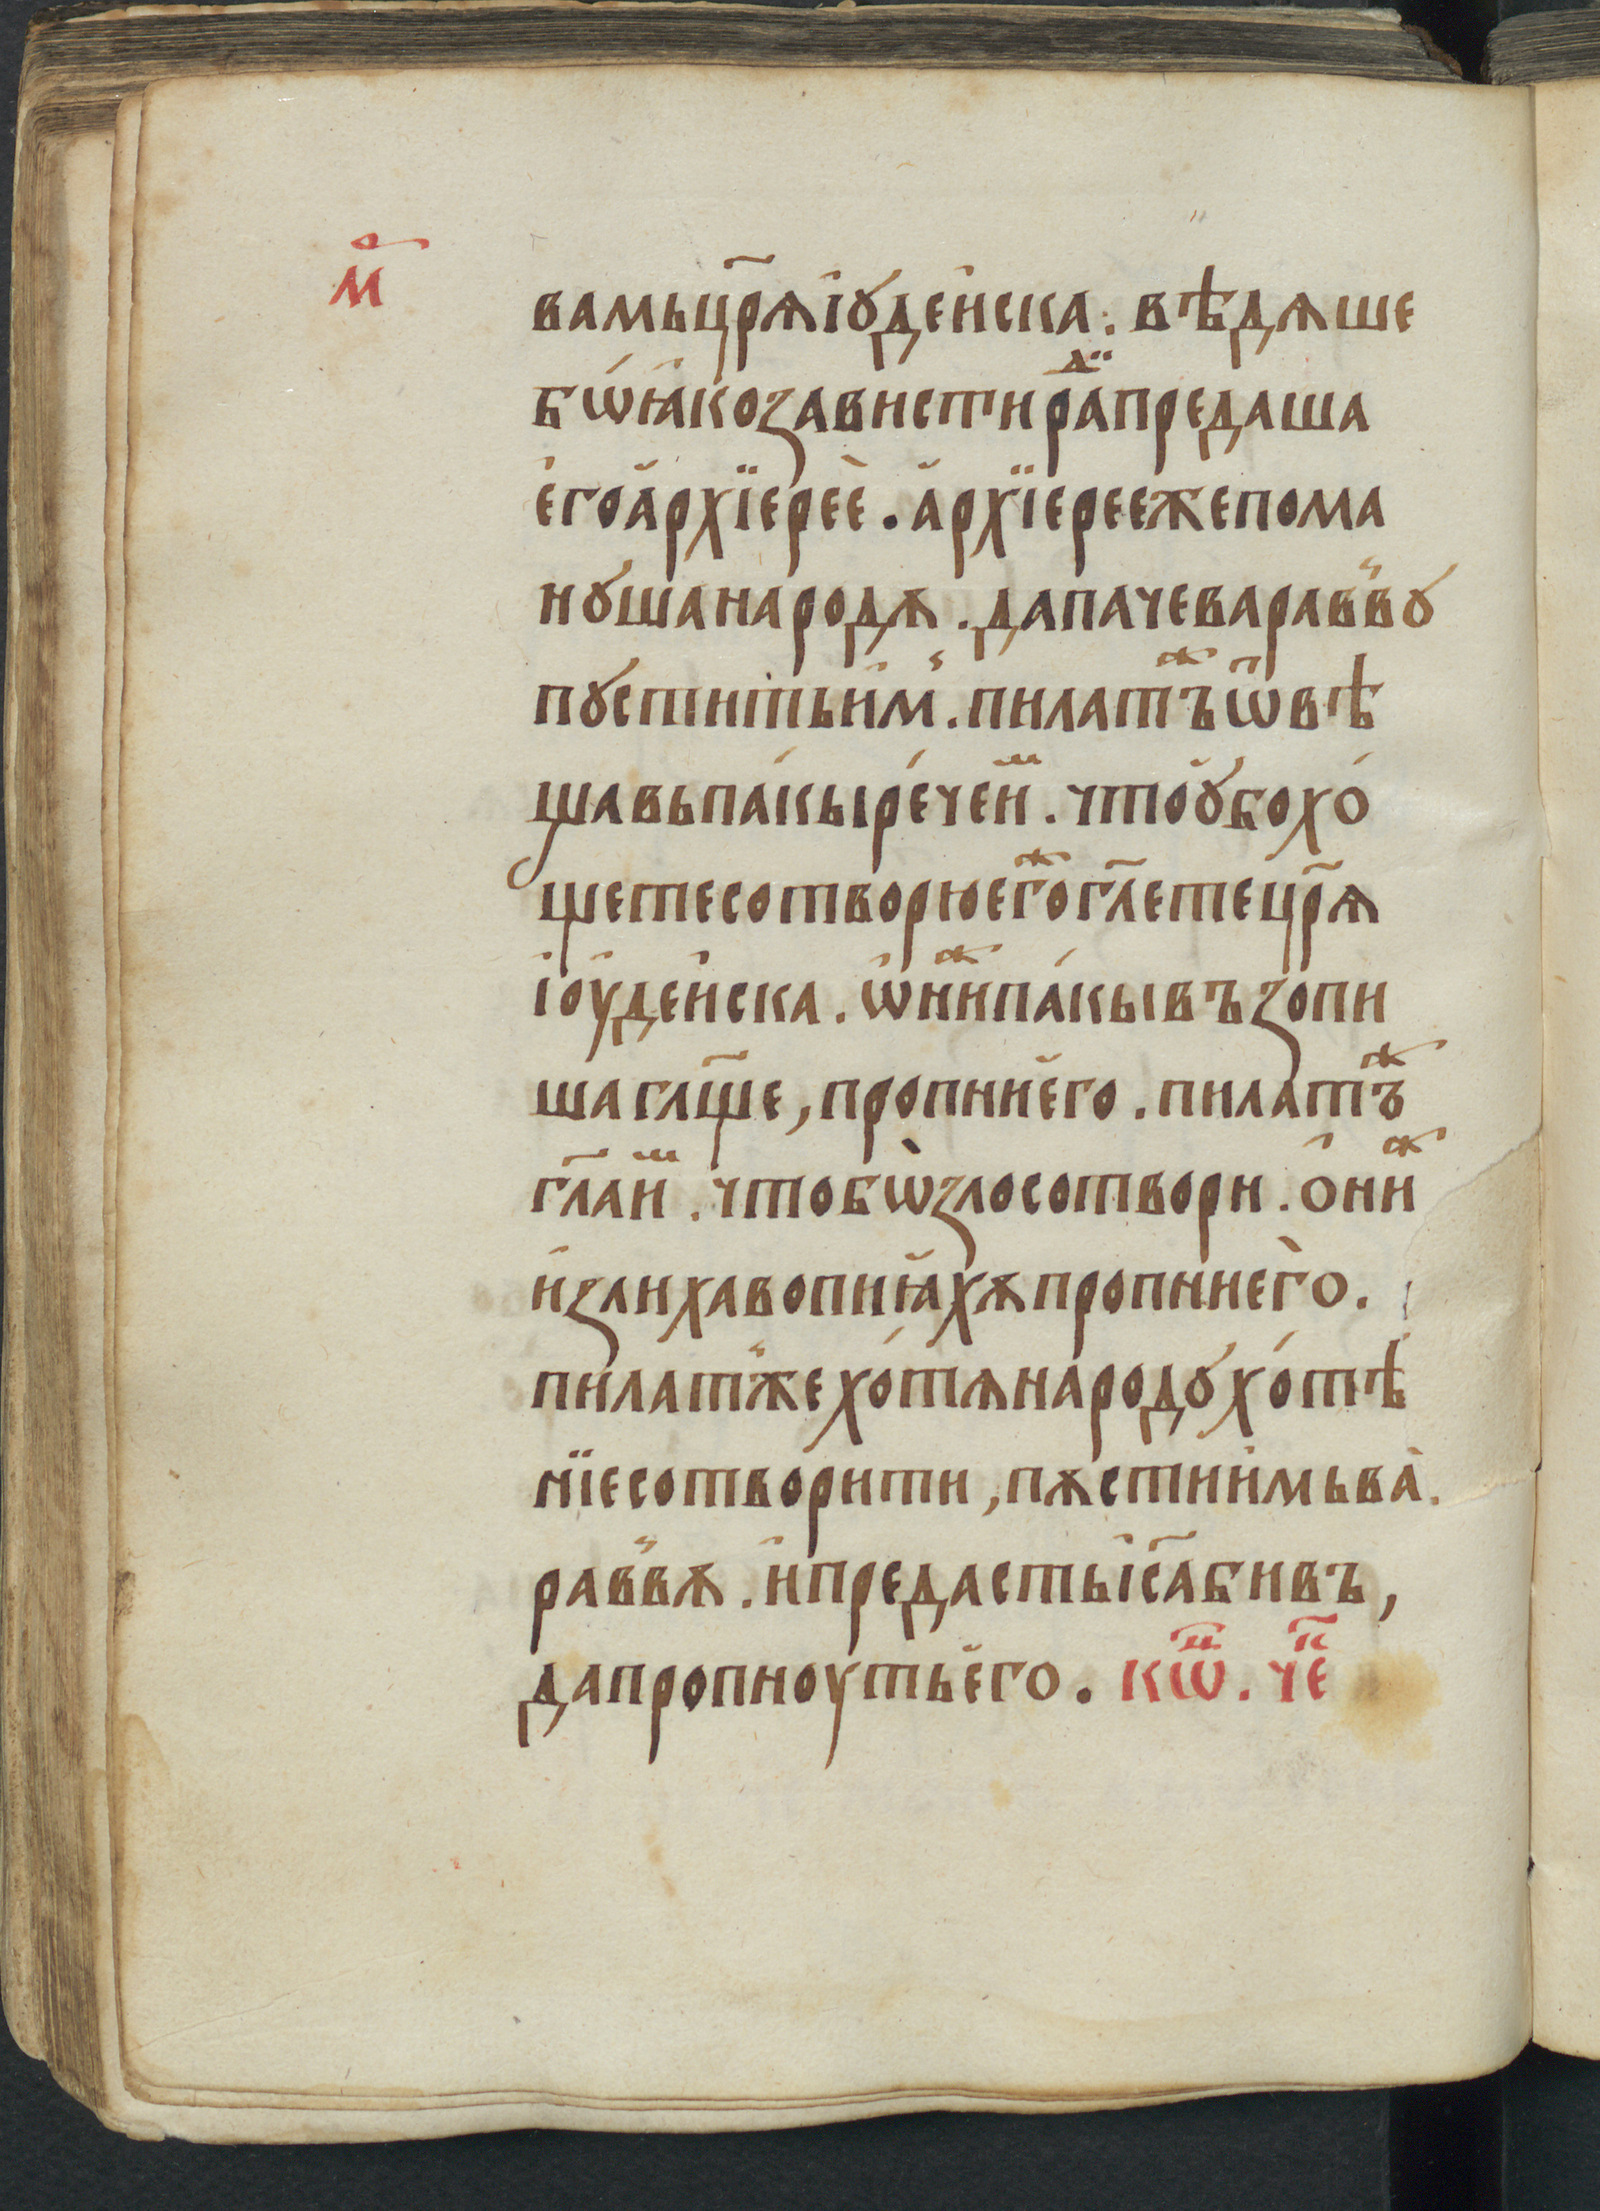 м҃
вамьцр҃ѧіꙋдеиска. вѣдѧше
бѡꙗкоꙁавистираⷣпредаша
егоархїерее. архїерееѫепома
нꙋшанародѫ. дапачеваравъвꙋ
пꙋститьим. пилатъⷤѿвѣ
щавьпакыречеиⷨ. чтоꙋбохо
щетесотворюегоⷤгл҃етецр҃ѧ
іоудеиска. ѡниⷤпакывъꙁопи
шагл҃ще, пропниего. пилатъⷤ
гл҃аиⷨ. чтобѡꙁлосотвори. ониⷤ
иꙁлихавопиꙗхѫпропниего.
пилатжехотѧнародꙋхотѣ
нїесотворити, пѫстиимьва.
раввѫ. ипредастьіс҃абивъ,
дапропноутьего. кѡⷩ҇. чеⷮ